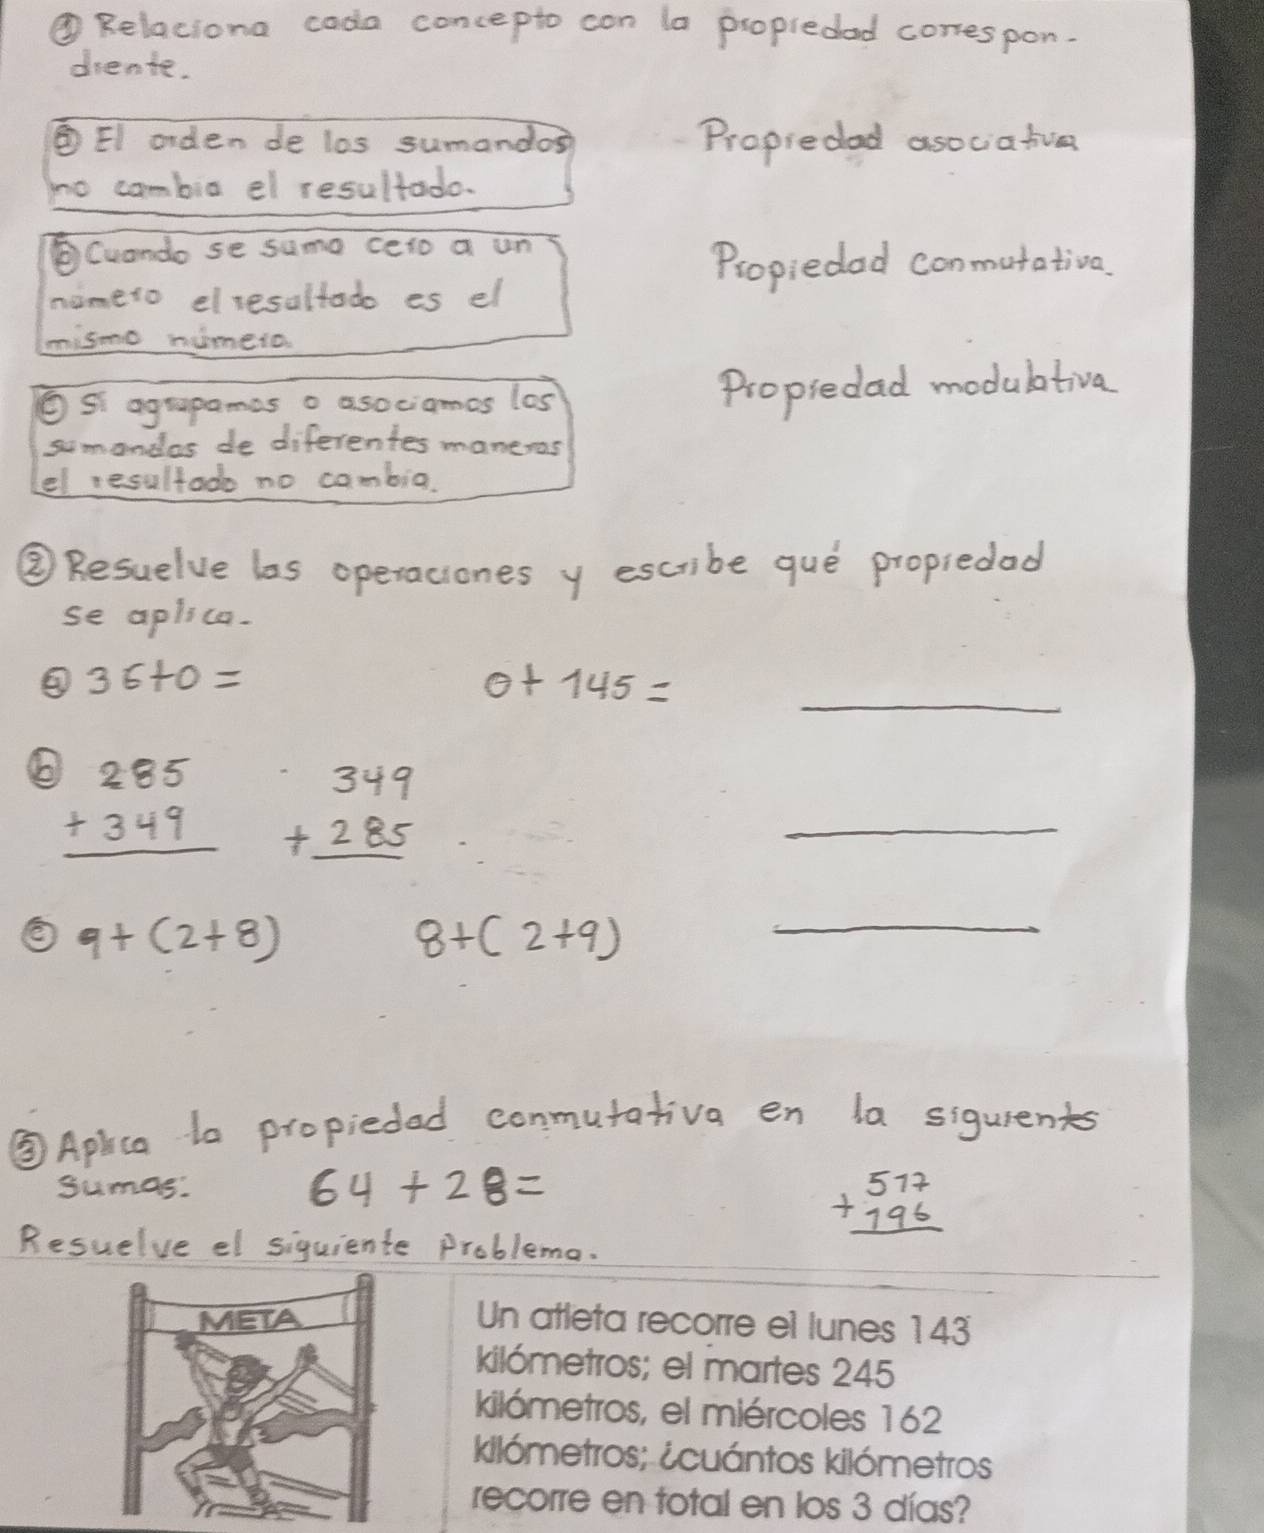 ① Relaciona cada concepto con la propiedad correspon-
diente.
ⓐ El orden de los sumandos
no cambia el resultado.
Propiedad asociativa
ⓑ Cuando se suma cero a un
número el resultado es el
mismo número.
Propiedad conmutativa.
ⓒ Si agrupamos o asociamos los
sumandos de diferentes maneras
el resultado no cambia.
Propiedad modulativa
② Resuelve las operaciones y escribe qué propiedad
se aplica.
ⓐ 36+0= 0+145=
ⓑ 285 349
+349 +285
ⓒ 9+(2+8) 8+(2+9)
③ Aplica la propiedad conmutativa en la siguientes
sumas: 64+28= 517
+196
Resuelve el siguiente Problema.
META
Un atleta recorre el lunes 143
kilómetros; el martes 245
kilómetros, el miércoles 162
kilómetros; ¿cuántos kilómetros
recorre en total en los 3 días?